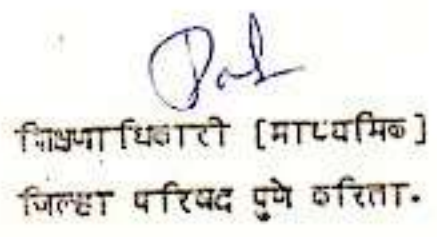 शिक्षणाधिकारी [माध्यमिक]
जिल्हा परिषद पुणे करिता.